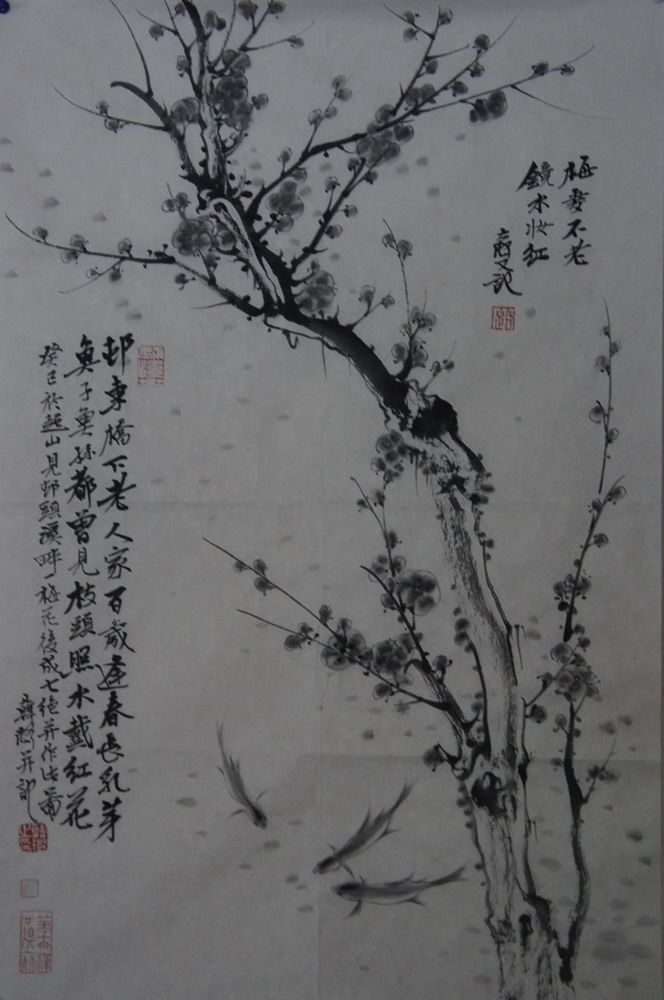 梅春不老
鏡水妆红
又記
邨東橋下老人家百歲逢春長乳芽
魚子魚孫都曾見枝頭照水戴紅花
癸巳於越山見邨頭溪畔一梅花後成七绝并作此圖
并記